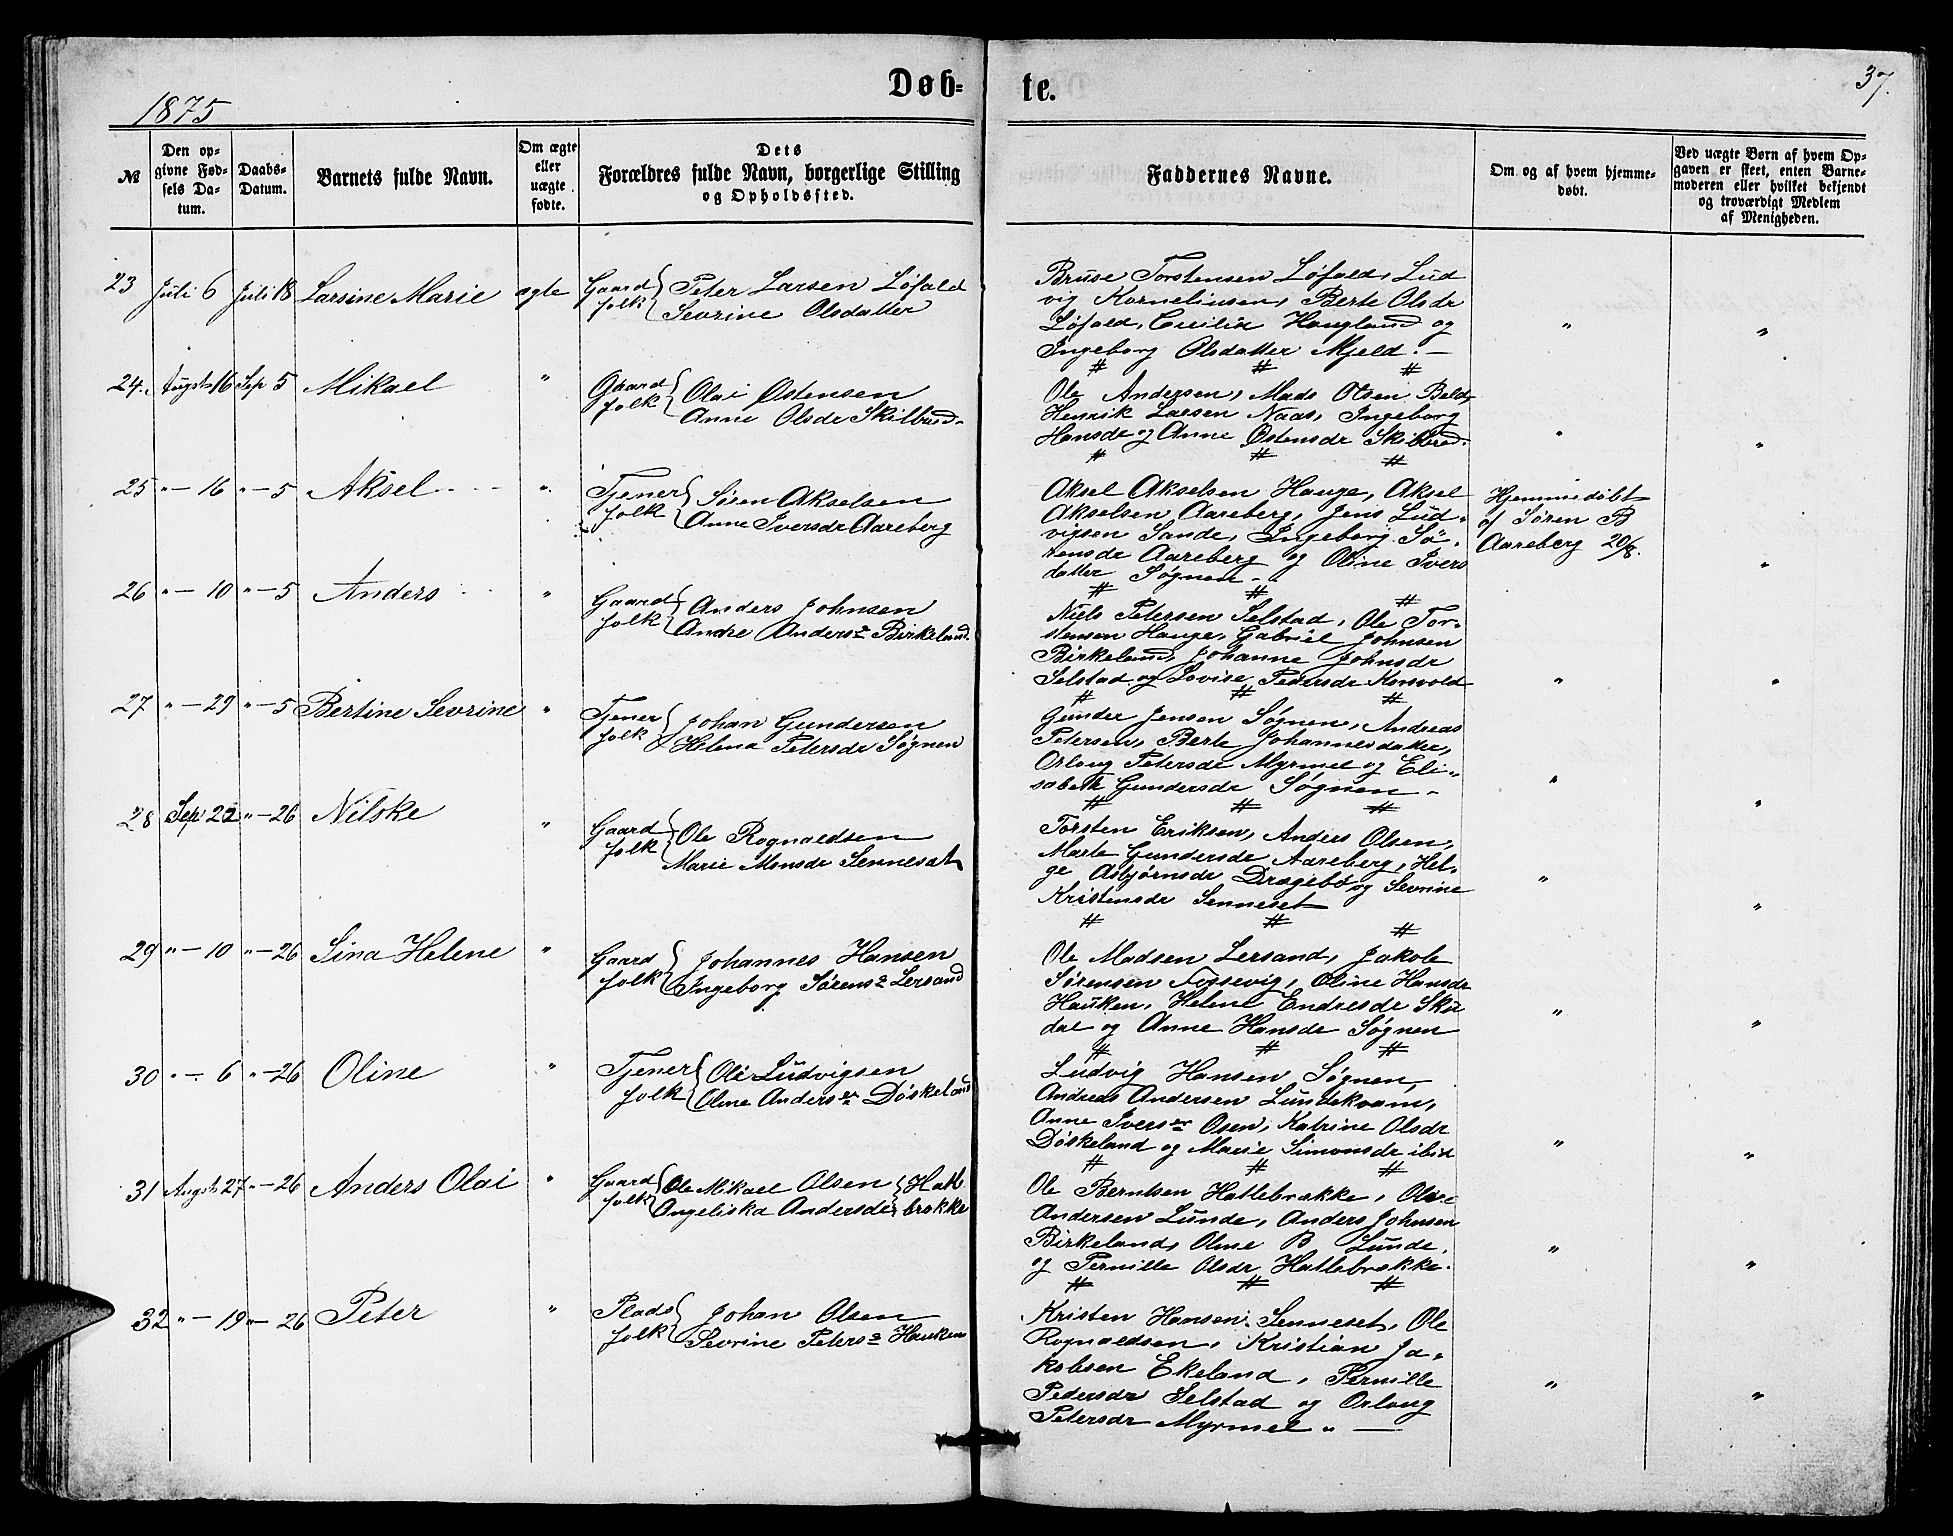 1875
Døb- te.
37.
№
Den opgivne Fødsels Datum.
Daabs-Datum.
Barnets fulde Navn.
Om ægte eller uægte fødte.
Dets Forældres fulde Navn, borgerlige Stilling og Opholdssted.
Faddernes Navne.
Om og af hvem hjemmedøbt.
Ved uægte Børn af hvem Opgaven er skeet, enten Barnemoderen eller hvilket bekjendt og troværdigt Medlem af Menigheden.
23 Juli 6 Juli 18 Larsine Marie ægte Gaard folk { Peter Larsen Løfald
Sevrine Olsdatter
Bruse Torstensen Løfald, Lud
vig Korneliusen, Berte Olsdr
Løfald, Cecilia Haugland og
Ingeborg Olsdatter Mjeld. —
24. Augst 16 Sep 5 Mikael " Gaard folk { Olai Østensen
Anne Olsdr Skilbred.
Ole Andersen, Mads Olsen Beld,
Henrik Larsen Naas, Ingeborg
Hansdr og Anne Østensdr Skilbred.
25 " — 16 " — 5 Aksel " Tjener folk { Søren Akselsen
Anne Iversdr Aareberg
Aksel Akselsen Hauge, Aksel
Akselsen Aareberg, Jens Lud-
vigsen Sande, Ingeborg Sø-
rensdr Aareberg og Oline Ivers
datter Søgnen —
Hjemmedøbt
af Søren B
Aareberg 20/8.
26 " — 10 " — 5 Anders " Gaard folk { Anders Johnsen
Andre Anders Birkeland.
Niels Petersen Selstad, Ole Tor-
stensen Hauge, Gabriel Johnsen
Birkeland, Johanne Johnsdr
Selstad og Lovise Pedersdr Korsvold
27 " — 29 " — 5 Bertine Sevrine " Tjener folk { Johan Gundersen
Helena Petersdr Søgnen
Gunder Jensen Søgnen, Andreas
Petersen, Berte Johannesdatter,
Orloug Petersdr Myrmel og Eli-
sabeth Gundersdr Søgnen —
28 Sep 22 " — 26 Nilske " Gaard folk { Ole Rognaldsen
Marie Monsdr Senneset
Torsten Eriksen, Anders Olsen,
Marte Gundersdr Aareberg, Hel-
ge Asbjørnsdr Dragebø og Sevrine
Kristensdr Senneset
29 " — 10 " — 26 Sina Helene " Gaard folk { Johannes Hansen
Ingeborg Sørens Lersand
Ole Madsen Lersand, Jakob
Sørensen Fossevig, Oline Hansdr
Hauken, Helene Endresdr Sku
dal og Anne Hansdr Søgnen
30 " — 6 " — 26 Oline " Tjener folk { Ole Ludvigsen
Oline Anders Døskeland
Ludvig Hansen Søgnen,
Andreas Andersen Lundekvam,
Anne Ivers Osen, Katrine Olsdr
Døskeland og Marie Simonsdr ibid
31 Augst 27 " — 26 Anders Olai " Gaard folk { Ole Mikael Olsen
Angeliska Andersdr } Hatle brække
Ole Berntsen Hatlebrække,
Andersen Lunde, Anders Johnsen
Birkeland, Oline B Lunde,
og Pernille Olsdr Hatlebrække.
32 " — 19 " — 26 Peter " Plads folk { Johan Olsen
Sevrine Peters Hauken
Kristen Hansen Senneset, Ole
Rognaldsen, Kristian Ja-
kobsen Ekeland, Pernille
Pedersdr Selstad og Orloug
Petersdr Myrmel " —